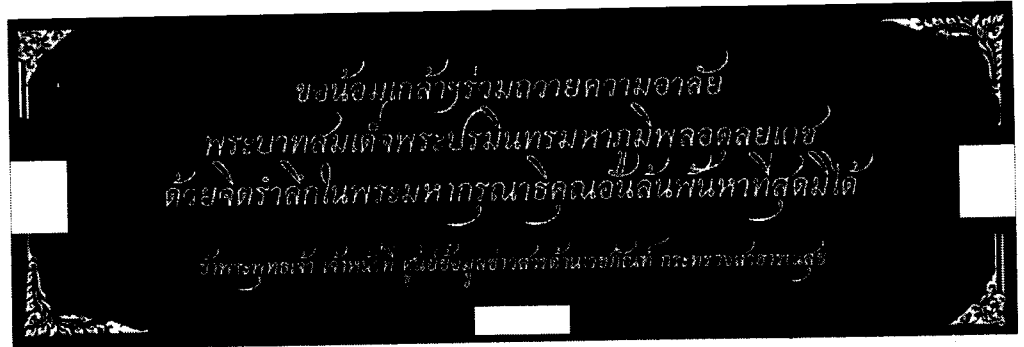 ขอน้อมเกล้าฯร่วมถวายความอาลัย
พระบาทสมเด็จพระปรมินทรมหาภูมิพลอดุลยเดช
ด้วยจิตรำลึกในพระมหากรุณาธิคุณอันล้นพ้นหาที่สุดมิได้
ข้าพระพุทธเจ้า เจ้าหน้าที่ ศูนย์ข้อมูลข่าวสารด้านเวชภัณฑ์ กระทรวงสาธารณสุข